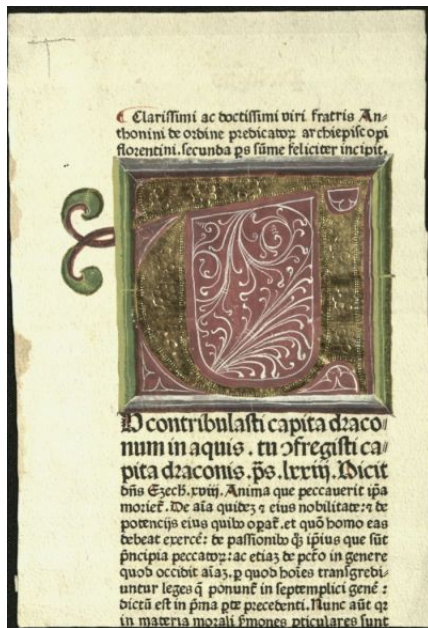 Clarissimi ac doctissimi viri fratris An-
thonini de ordine predicatoꝝ archiepiscopi
florentini. secunda ps sūme feliciter incipit.
T
U contribulasti capita draco-
num in aquis. tu ↄfregisti ca-
pita draconis. p̄s. lxxiij. Dicit
dn̄s Ezech. xviij. Anima que peccauerit ip̄a
moriet̄. De aīa quidez ⁊ eius nobilitate: ⁊ de
potencijs eius quibꝰ oꝑat̄. et quō homo eas
debeat exercē: de passionibꝰ qꝫ ip̄ius que sūt
p̄ncipia peccatoꝝ: ac etiaꝫ de pctō in genere
quod occidit aīaꝫ. ꝑ quod hoīes transgredi-
untur leges q̄ ponunt̄ in septemplici genē:
dictū est in p̄ma ꝑte precedenti. Nunc aūt qꝛ
in materia morali ẜmones ꝑticulares sunt